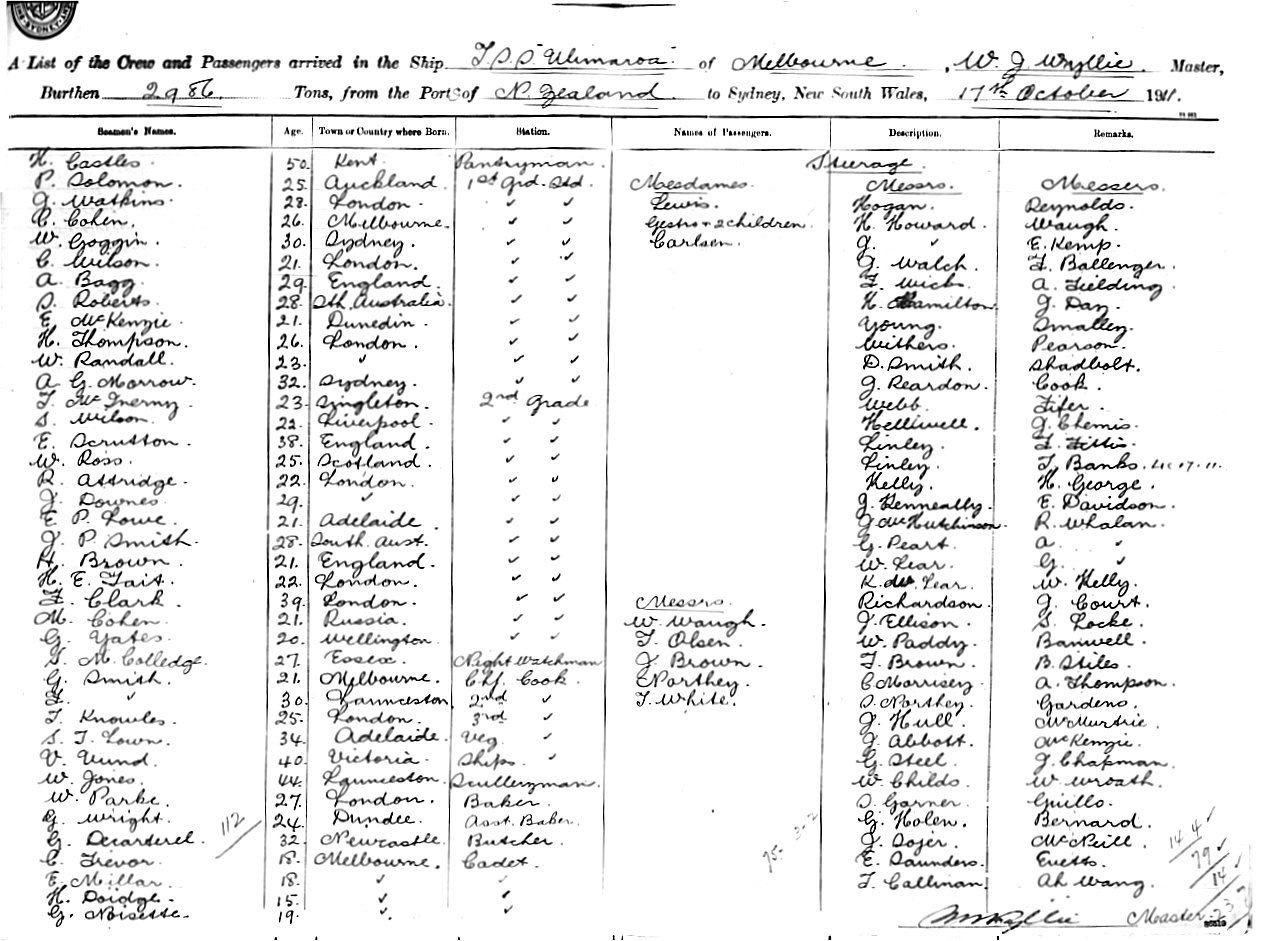 A List of the Crew and Passengers arrived in the Ship T.S.S. "Ulimaroa" of Melbourne, W. J. Wyllie Master,
Burthen 2986 Tons, from the Port of N. Zealand to Sydney, New South Wales, 17th October 1911.
Seamen's Names. Age. Town or Country where Born. Station. Names of Passengers. Description. Remarks.
H. Castles. 50. Kent. Pantryman. Steerage.
P. Solomon. 25. Auckland. 1st Grd. Std. Mesdames. Messrs. Messrs.
J. Watkins. 28. London. ✓ ✓ Lewis. Hogan. Reynolds.
C. Cohen. 26. Melbourne. ✓ ✓ Gestro + 2 children. H. Howard. Waugh.
W. Goggin. 30. Sydney. ✓ ✓ Carlsen. J. " E. Kemp.
C. Wilson. 21. London. ✓ ✓ J. Walch. F. Ballenger.
A. Bagg. 29. England. ✓ ✓ F. Wicks. A. Fielding.
S. Roberts. 28. Sth. Australia. ✓ ✓ H. Hamilton. J. Day.
E. McKenzie. 21. Dunedin. ✓ ✓ Young. Smalley.
H. Thompson. 26. London. ✓ ✓ Withers. Pearson.
W. Randall. 23. " ✓ ✓ D. Smith. Shadbolt.
A. G. Morrow. 32. Sydney. ✓ ✓ J. Reardon. Cook.
T. McInerny. 23. Singleton. 2nd Grade Webb. Fifer.
S. Wilson. 22. Liverpool. ✓ ✓ Helliwell. J. Chemis.
E. Scrutton. 38. England. ✓ ✓ Linley. F. Fittis.
W. Ross. 25. Scotland. ✓ ✓ Linley. T. Banks.
R. Attridge. 22. London. ✓ ✓ Kelly. H. George.
J. Downes. 29. " ✓ ✓ J. Kenneally. E. Davidson.
E. P. Lowe. 21. Adelaide. ✓ ✓ J. McHutchinson. R. Whalan.
J. P. Smith. 28. South Aust. ✓ ✓ G. Peart. A. "
H. Brown. 21. England. ✓ ✓ W. Lear. G. "
H. E. Tait. 22. London. ✓ ✓ K. Lear. W. Kelly.
F. Clark. 39. London. ✓ ✓ Messrs. Richardson. J. Court.
M. Cohen. 21. Russia. ✓ ✓ W. Waugh. J. Ellison. S. Locke.
G. Yates. 20. Wellington. ✓ ✓ T. Olsen. W. Paddy. Banwell.
G. M. Colledge. 27. Essex. Night Watchman J. Brown. T. Brown. B. Stiles.
G. Smith. 21. Melbourne. Chf. Cook. E. Northey. C. Morrisey. A. Thompson.
F. " 30. Launceston 2nd ✓ T. White. S. Northey. Gardens.
T. Knowles. 25. London. 3rd ✓ J. Hull. McMurtrie.
S. T. Lown. 34. Adelaide. Veg. ✓ J. Abbott. McKenzie.
V. Vund. 40. Victoria. Ships. ✓ G. Steel. J. Chapman.
W. Jones. 44. Launceston. Sculleryman. W. Childs. W. Wroath.
W. Parke. 27. London. Baker. S. Garner. Guillo.
G. Wright. 24. Dundee. Asst. Baker. G. Holen. Bernard.
G. Decarterel. 112 32. Newcastle. Butcher. J. Dojer. McNeill. 144 ✓
C. Trevor. 18. Melbourne. Cadet. 75. 3-2 E. Saunders. Evetts. 79 ✓
E. Millar. 18. " ✓ T. Callinan. Ah Wang. 14 ✓
H. Doidge. 15. " ✓
G. Noisette. 19. " ✓ W J Wyllie Master